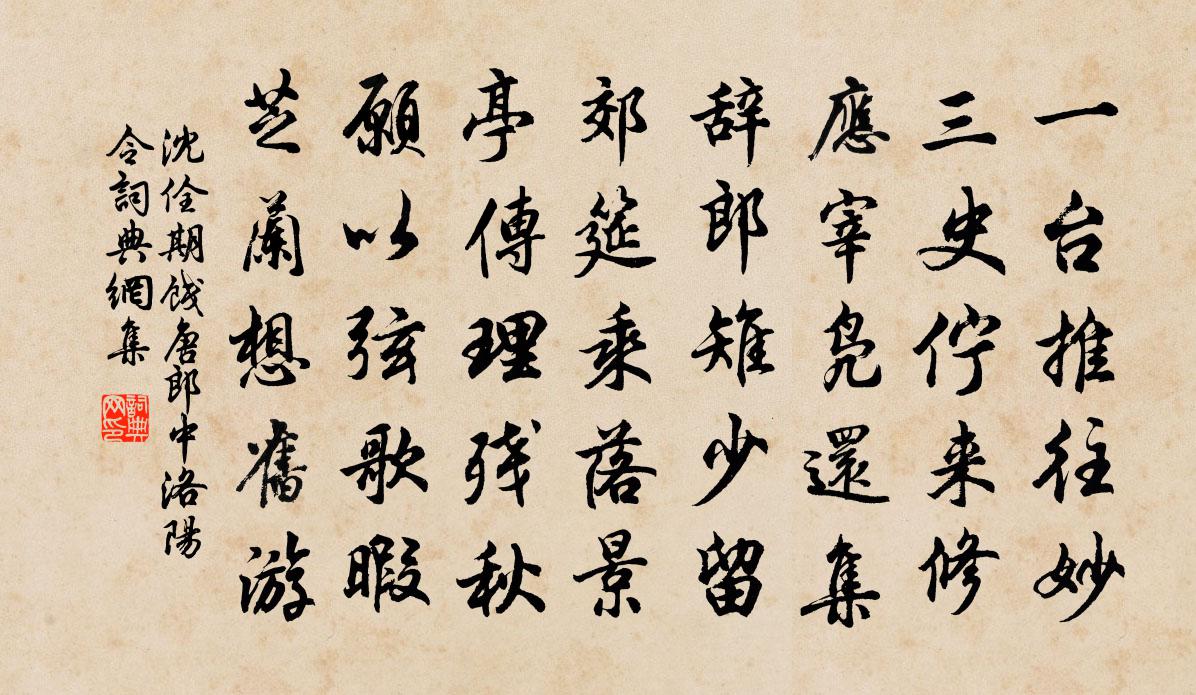 一台推往妙
三史佇来修
應宰凫還集
辞郎雉少留
郊筵乘落景
亭傳理残秋
願以弦歌暇
芝蘭想舊游
沈佺期餞唐郎中洛陽
令詞典網集
詞典
网印